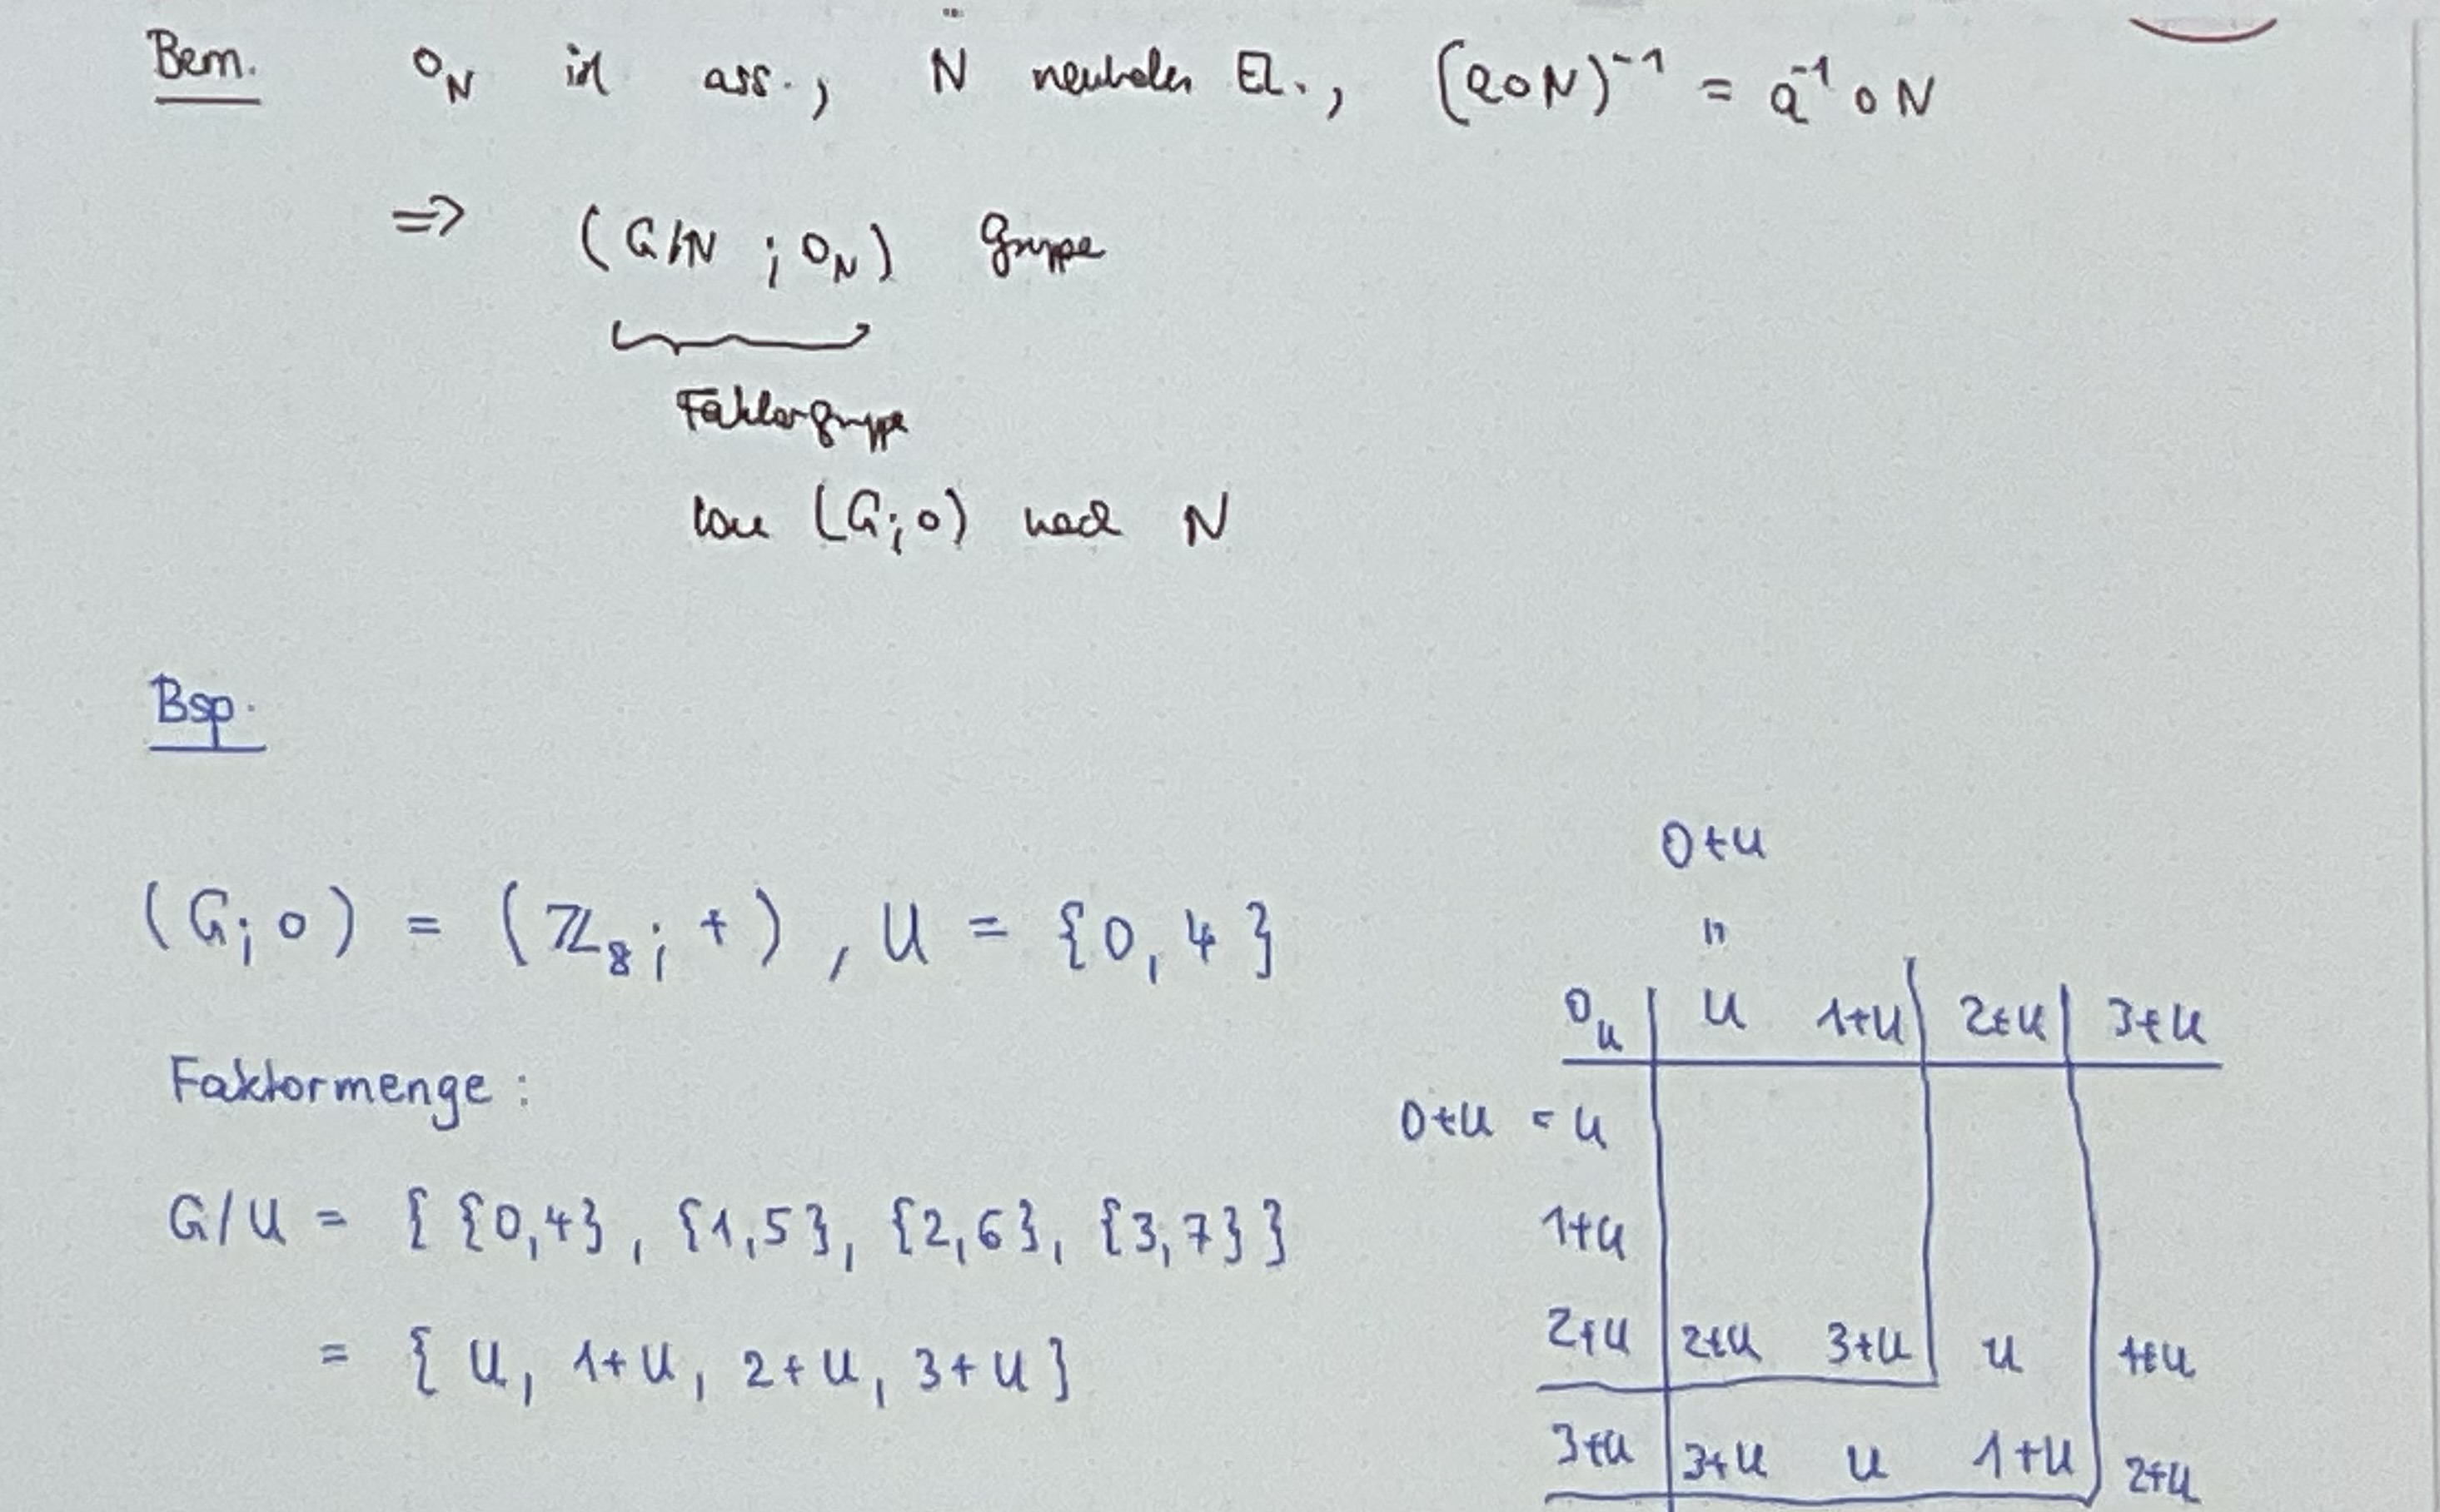 Bem. ∘_N ist ass., N neutrales El., (a∘N)⁻¹ = a⁻¹∘N
⇒ (G/N ; ∘_N) Gruppe
Faktorgruppe
von (G;∘) nach N
Bsp.
(G;∘) = (ℤ₈; +), U = {0,4}
Faktormenge:
G/U = { {0,4}, {1,5}, {2,6}, {3,7} }
= { U, 1+U, 2+U, 3+U }
0+U
"
∘_U | U 1+U | 2+U | 3+U
0+U = U
1+U
2+U | 2+U 3+U | U | 1+U
3+U | 3+U U 1+U | 2+U